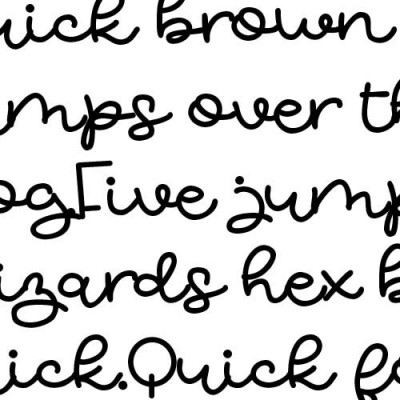 uick brown
umps over th
og.Five jump
izards hex b
ick.Quick fo